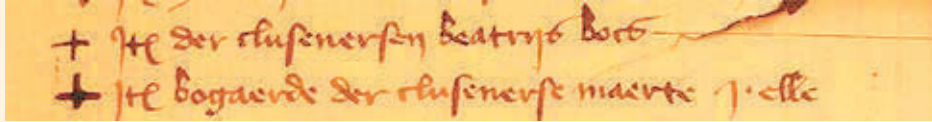 + Itē der clusenersen beatrijs bocs
+ Itē bogaerde der clusenerse maerte j. elle